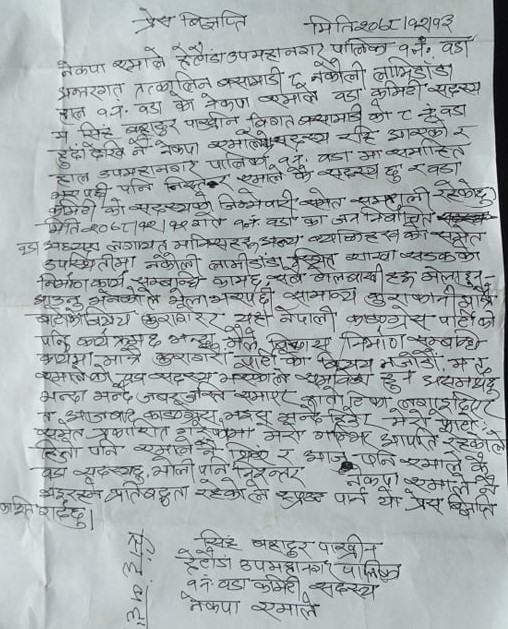 प्रेस बिज्ञप्ति
मिति २०७८/१२/१३
नेकपा एमाले हेटौंडा उपमहानगर पालिका १९ नं. वडा
अन्तरगत तत्कालिन बसामाडी ८ नकौली लामिडाँडा
हाल १९ वडा को नेकपा एमाले वडा कमिटी सदस्य
म सिंह बहादुर पाख्रीन विगत बसामाडी को ८ नं वडा
हुँदा देखि नै नेकपा एमालेको सदस्य रहि आएको र
हाल उपमहानगर पालिका १९ वडा मा समाहित
भए पछी पनि निरन्तर एमाले कै सदस्य छु र वडा
कमिटी को सदस्यको जिम्मेवारी समेत सम्हाली रहेकोछु
मिति २०७८/१२/ गते १९ नं. वडा का जन निर्वाचित
वडा अध्यक्ष लगायत अन्य व्यक्तिहरु को समेत
उपस्थितीमा नकौली लामीडाँडा स्थित शाखा सडकको
निर्माण कार्य सम्बन्धि काम छ सबै टोलबासी हरु भेला हुन
आउनु भनेकोले भेला भए पछी सामान्य कुराकानी
कुरा गरेर यहाँ नेपाली काङ्ग्रेस पार्टी को
पनि कार्यक्रम छ भन्नु मैले विकास निर्माण सम्बन्धी
कार्यमा मात्रै कुरा गरौं पार्टी को बिषय नजोडौं म त
एमालेको सदस्य भएकोले
भन्दा भन्दै जबरजस्ति समाएर रातो टिका लगाइदिएर
ल आजबाट काङ्ग्रेस भइस् भन्दै हिडे मेरो फोटो
समेत प्रकाशित मेरो गम्भिर आपत्ति रहेकोले
हिजो पनि एमाले नै थिएँ र आज पनि एमाले कै
वडा सदस्य छु भोली पनि निरन्तर नेकपा एमाले मै
रहने प्रतिबद्धता रहेकोले स्पष्ट पार्न यो प्रेस बिज्ञप्ति
जारी गर्दछु।
सिंह बहादुर पाख्रीन
हेटौंडा उपमहानगर पालिका
१९ नं. वडा कमिटी सदस्य
नेकपा एमाले